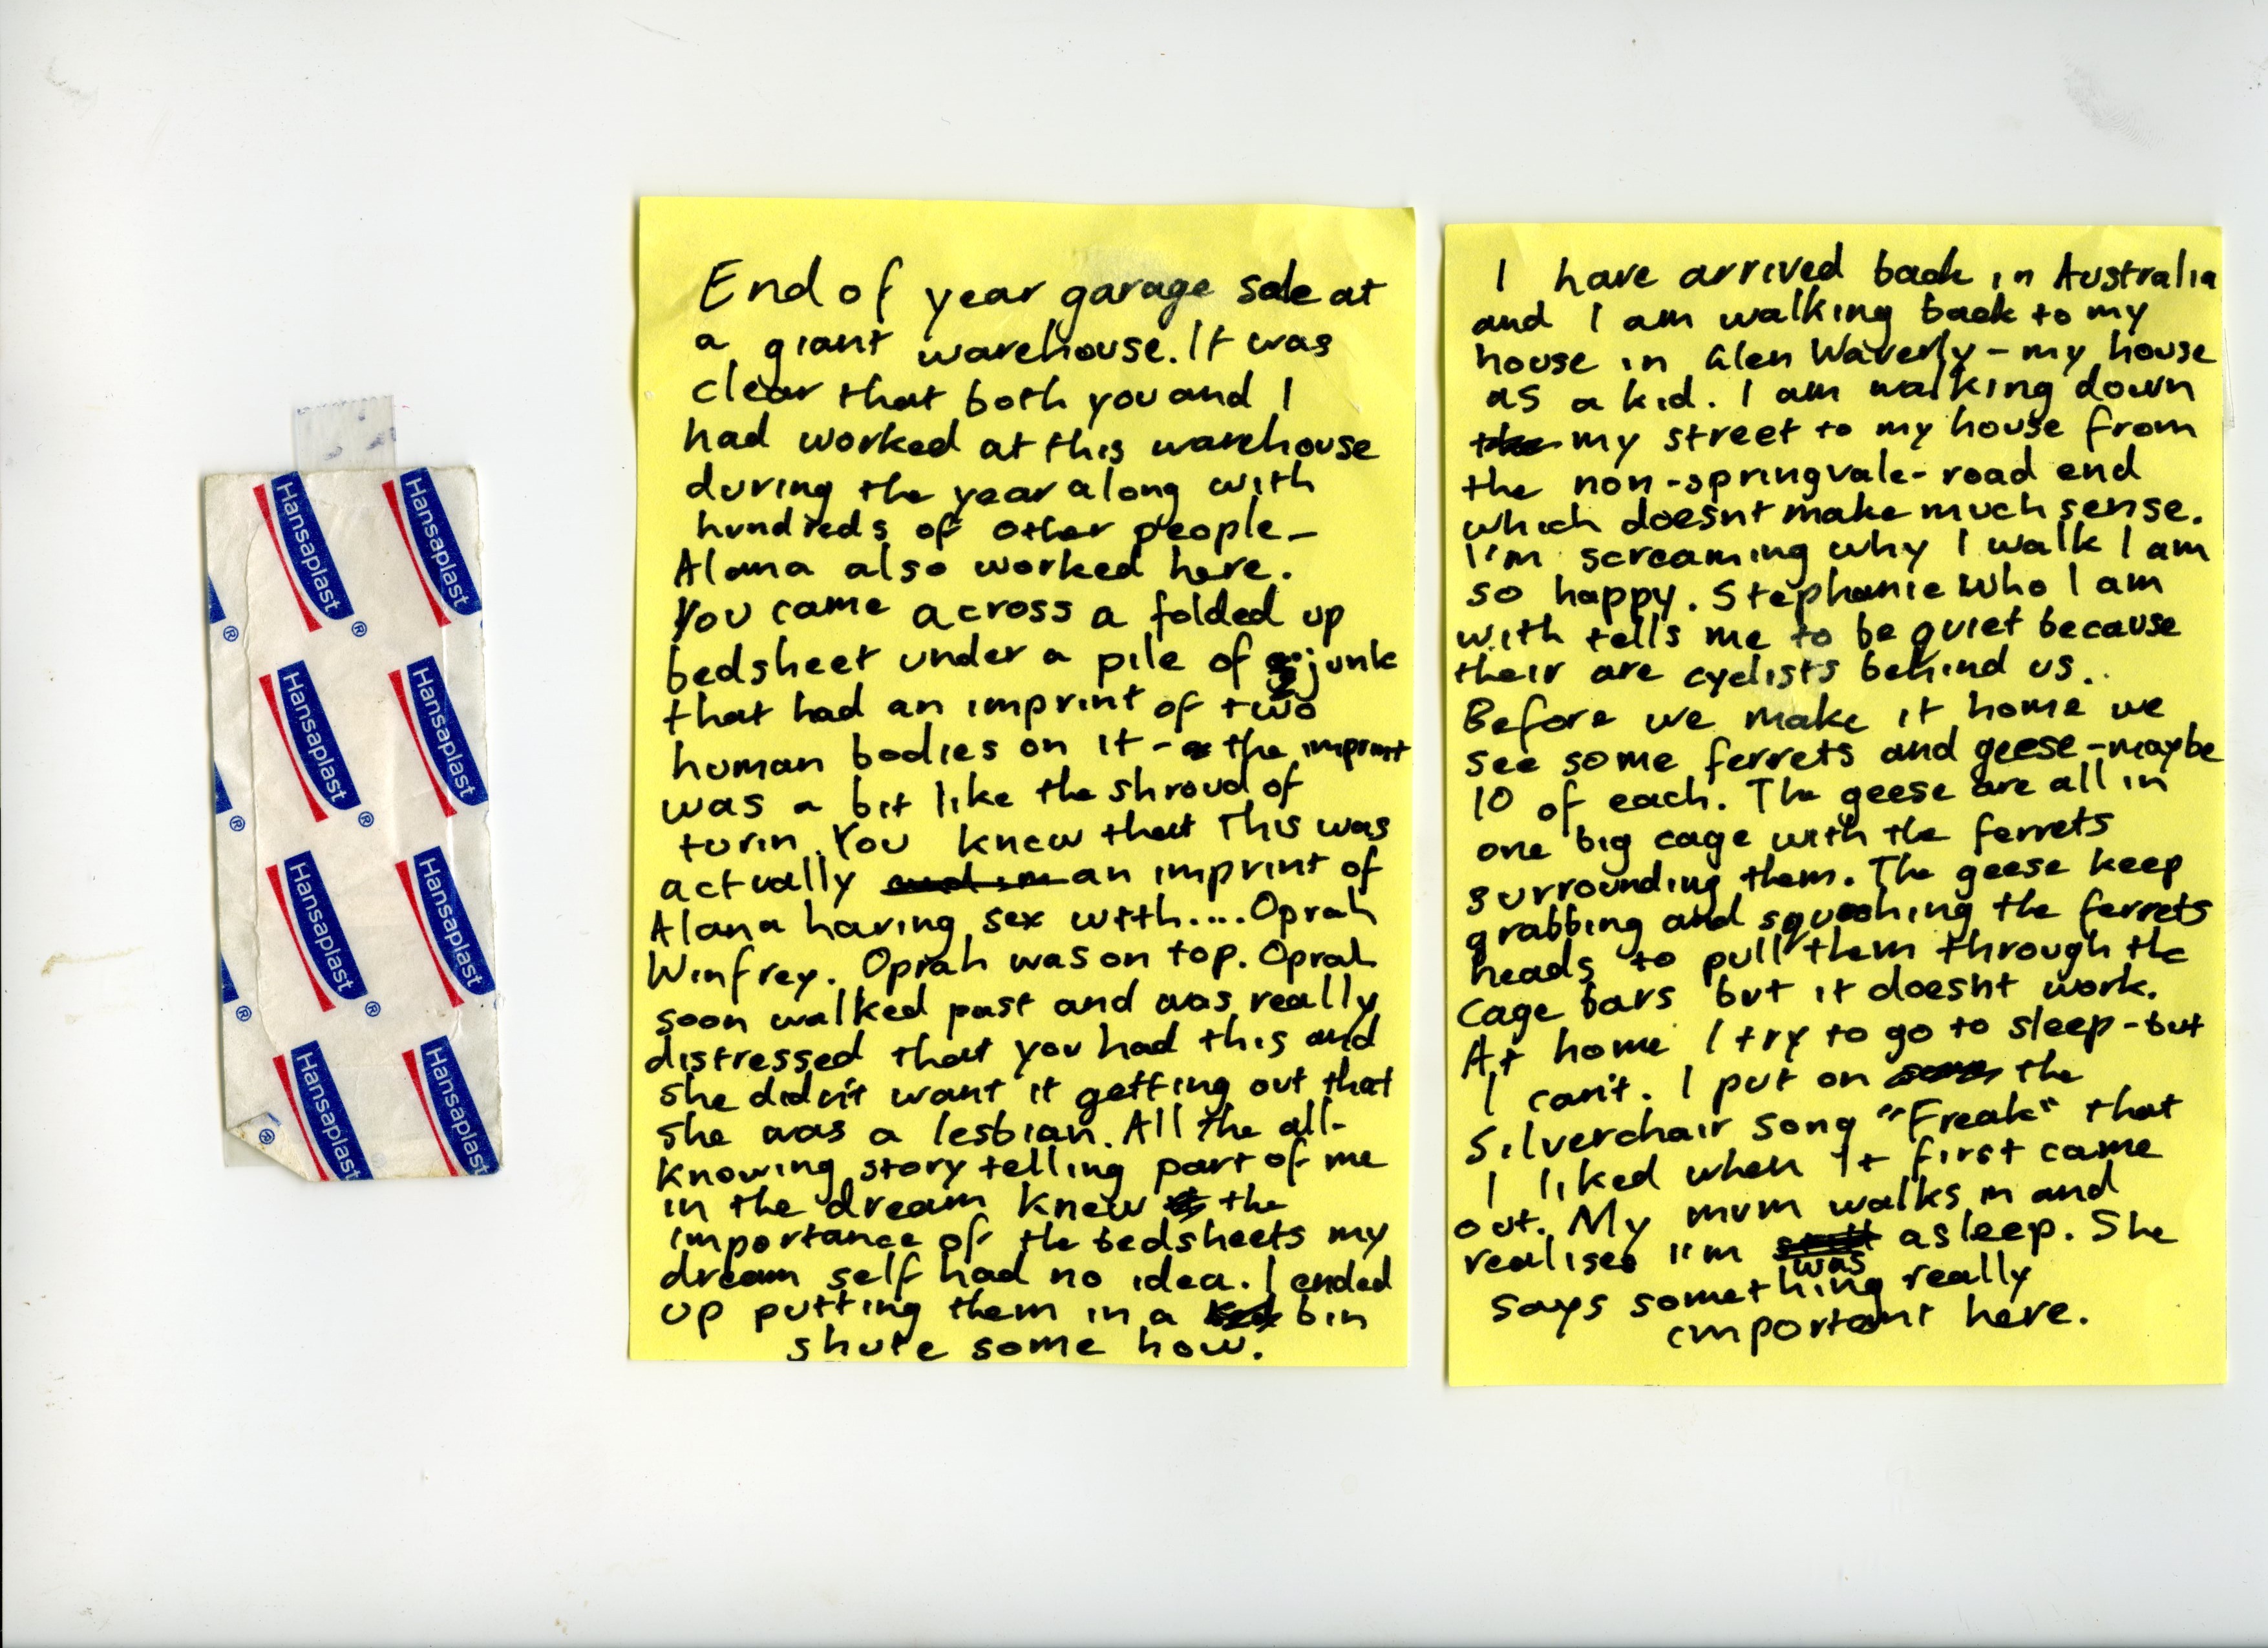 Hansaplast
Hansaplast
®
®
Hansaplast
Hansaplast
®
®
Hansaplast
Hansaplast
®
®
Hansaplast
Hansaplast
®
End of year garage sale at
a giant warehouse. It was
clear that both you and I
had worked at this warehouse
during the year along with
hundreds of other people-
Alana also worked here.
You came across a folded up
bedsheet under a pile of junk
that had an imprint of two
human bodies on it - the imprint
was a bit like the shroud of
turin. You knew that This was
actually an imprint of
Alana having sex with.... Oprah
Winfrey. Oprah was on top. Oprah
soon walked past and was really
distressed that you had this and
she didn't want it getting out that
she was a lesbian. All the all-
knowing story telling part of me
in the dream knew the
importance of the bedsheets my
dream self had no idea. I ended
up putting them in a bin
shute some how.
I have arrived back in Australia
and I am walking back to my
house in Glen Waverly - my house
as a kid. I am walking down
the my street to my house from
the non-springvale-road end
which doesnt make much sense.
I'm screaming why I walk I am
so happy. Stephanie Who I am
with tells me to be quiet because
their are cyclists behind us..
Before we make it home we
see some ferrets and geese - maybe
10 of each. The geese are all in
one big cage with the ferrets
surrounding them. The geese keep
grabbing and squashing the ferrets
heads to pull them through the
cage bars but it doesn't work.
At home I try to go to sleep - but
I can't. I put on the
Silverchair song "Freak" that
I liked when it first came
out. My mum walks in and
realises I'm was asleep. She
says something really
important here.